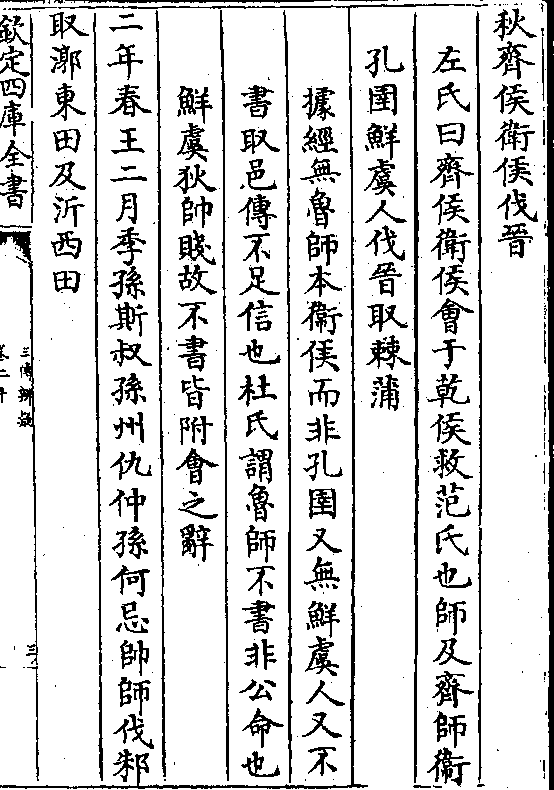 秋齊侯衛侯伐晉
左氏曰齊侯衛侯會于乾侯救范氏也師及齊師衛
孔圉鮮虞人伐晉取棘蒲
據經無魯師本衛侯而非孔圉又無鮮虞人又不
書取邑傳不足信也杜氏謂魯師不書非公命也
鮮虞狄帥賤故不書皆附會之辭
二年春王二月季孫斯叔孫州仇仲孫何忌帥師伐邾
取漷東田及沂西田
欽定四庫全書
三傳辨疑